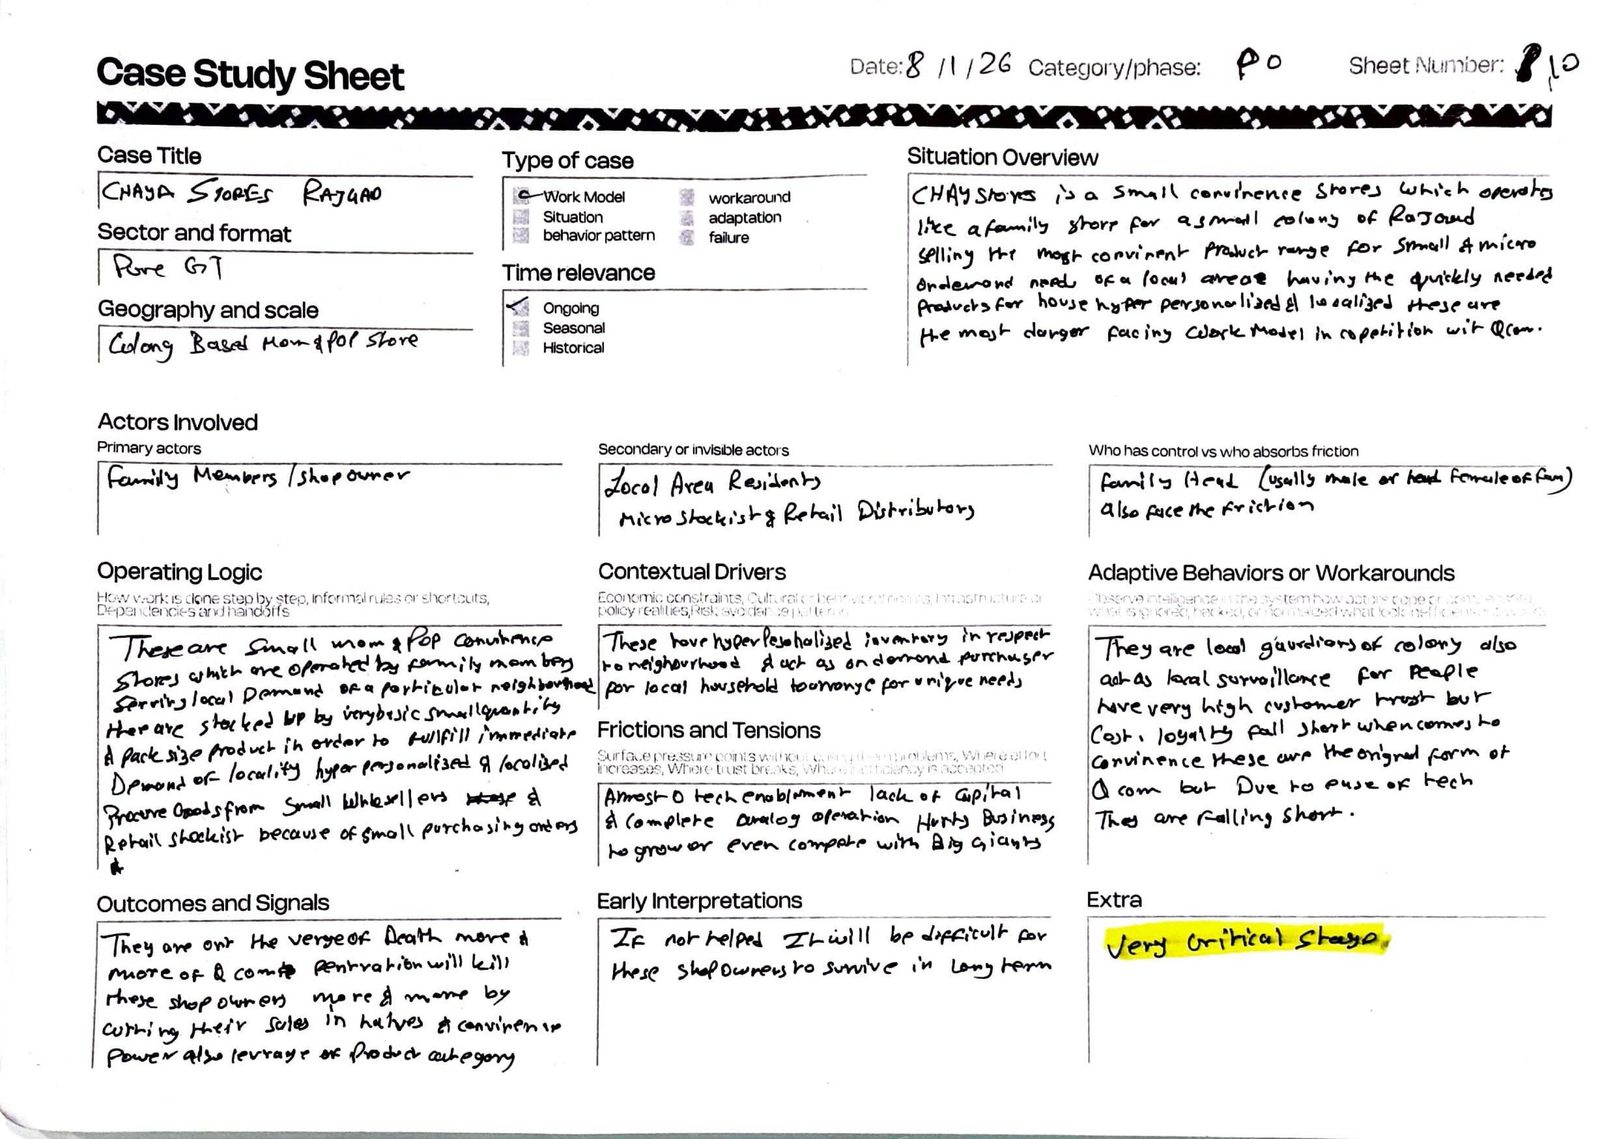 Case Study Sheet
Date: 8/1/26 Category/phase: P0 Sheet Number: 10
Case Title
CHAYA STORES RAJGAD
Sector and format
Pure GT
Geography and scale
Colony Based Mom & POP Store
Type of case
Work Model
Situation
behavior pattern
workaround
adaptation
failure
Time relevance
Ongoing
Seasonal
Historical
Situation Overview
CHAY Stores is a small convinence Stores which operates
like a family store for a small colony of
selling the most convinent Product range for Small & micro
ondemand needs of a local area having the quickly needed
Products for house hyper personalised & localised these are
the most danger facing Work Model in copetition wit Qcom.
Actors Involved
Primary actors
Family Members / shop owner
Secondary or invisible actors
Local Area Residents
Micro Stockist & Retail Distributors
Who has control vs who absorbs friction
Family Head (usally male or female of fam)
also face the friction
Operating Logic
How work is done step by step, Informal rules or shortcuts,
Dependencies and handoffs
These are small mom & POP convinence
Stores which are operated by family members
Serving local Demand of a particular neighborhood
ther are stocked up by very basic small quantity
& pack size product in order to fullfill immediate
Demand of locality hyper personalised & localised
Procure Goods from small wholesellers &
Retail stockist because of small purchasing orders
Contextual Drivers
Economic constraints, Infrastructure or
policy realities, Risk avoidance patterns
These have hyper Pesonalised inventory in respect
to neighourhood & act as on demand purchaser
for local household to arrange for unique needs
Frictions and Tensions
Surface pressure points without problems, Where effort
increases, Where trust breaks, Where inefficiency is accepted
Almost 0 tech enablement lack of Capital
& complete analog operation Hurts Business
to grow or even compete with Big Giants
Adaptive Behaviors or Workarounds
They are local gaurdians of colony also
act as local survaillance for People
have very high customer trust but
Cost, loyalty fall short when comes to
convinence these are the orignal form of
Q com but Due to ease of tech
They are falling short.
Outcomes and Signals
They are ont the verge of Death more &
more of Q com pentration will kill
these shop owners more & more by
cutting their sales in halves & convinence
Power also levrage of Product category
Early Interpretations
If not helped It will be difficult for
these shop owners to survive in long term
Extra
Very critical stage.